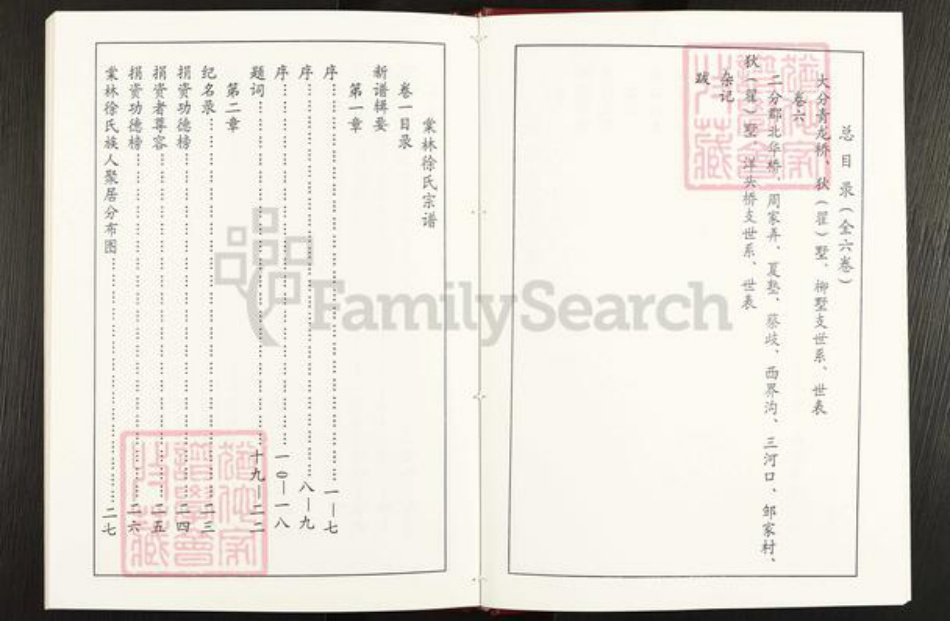 总目录(全六卷)
大分青龙桥、狄(翟)墅、柳墅支世系、世表
卷六
二分郡北华桥、周家弄、夏墊、蔡岐、西界沟、三河口、邹家村、
狄(翟)墅、洋头桥支世系、世表
杂记
跋
棠林徐氏宗谱
卷一目录
新谱辑要
第一章
序……一—七
序……八—九
序……一0—一八
题词……十九—二二
第二章
纪名录……二三
捐资功德榜……二四
捐资者尊容……二五
捐资功德榜……二六
棠林徐氏族人聚居分布图……二七
FamilySearch